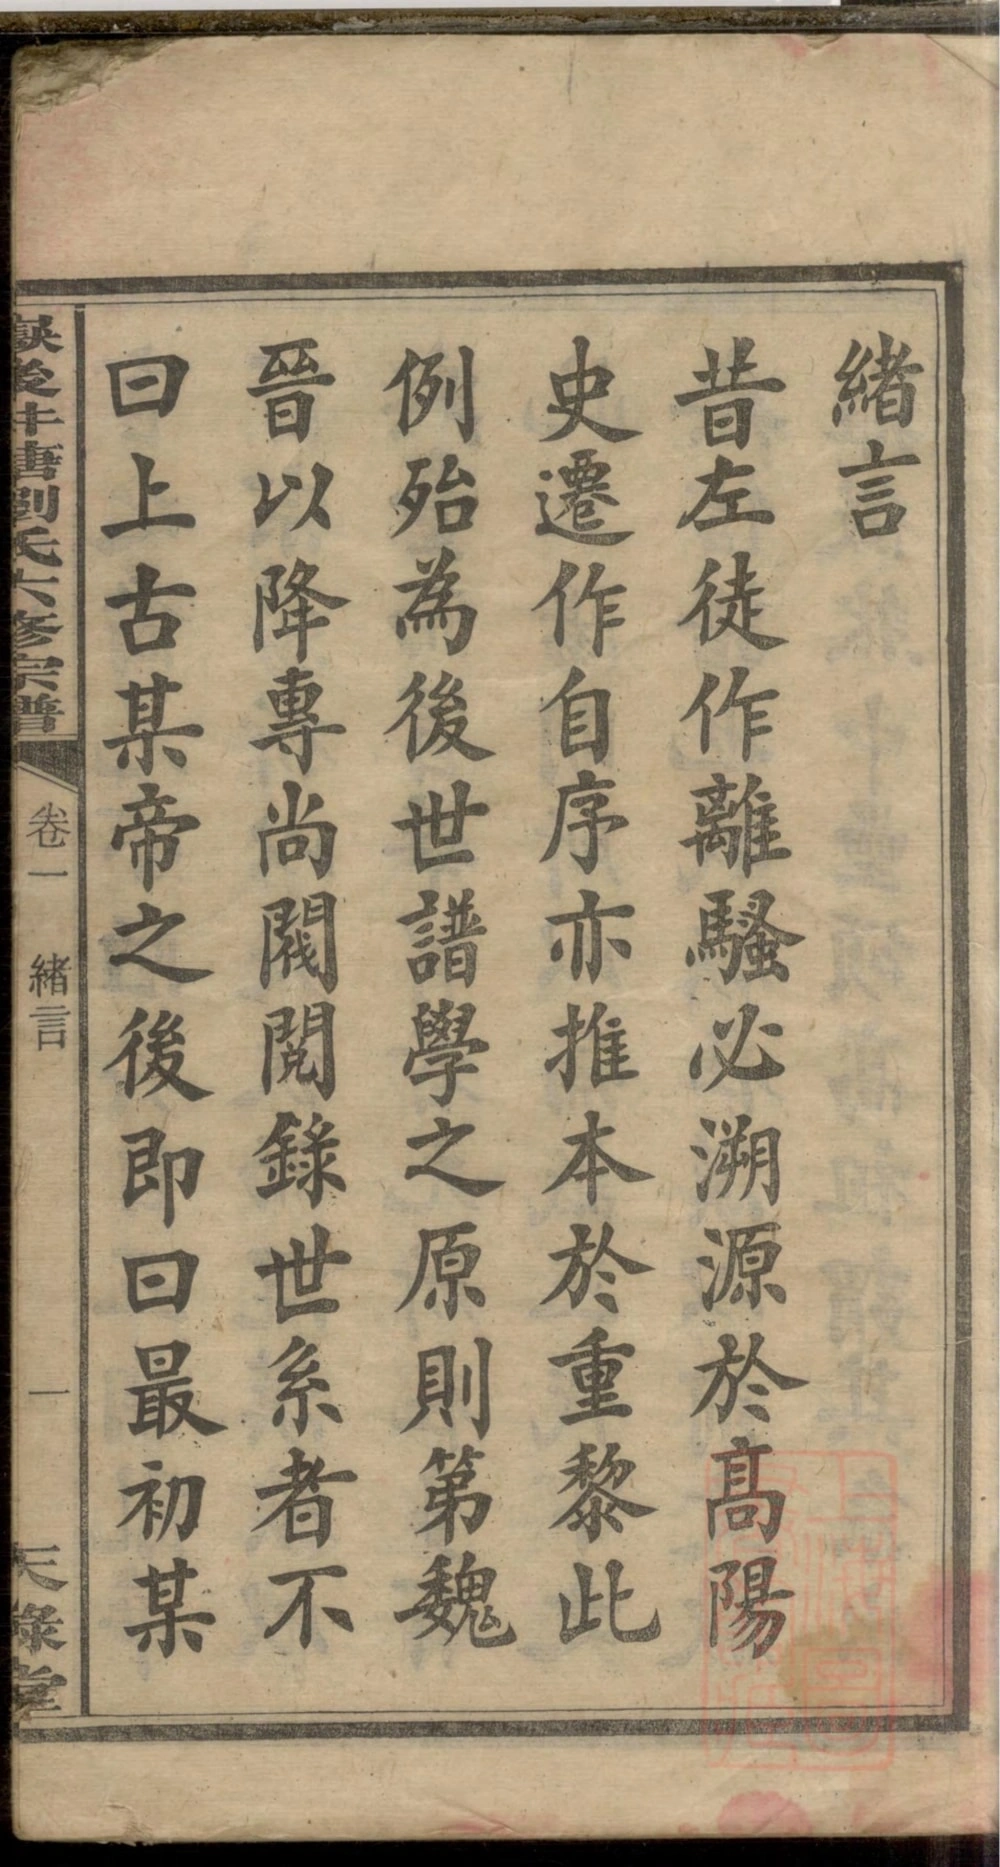 緒言
昔左徒作離騷必溯源於高陽
史遷作自序亦推本於重黎此
例殆為後世譜學之原則第魏
晉以降專尚閥閱錄世系者不
曰上古某帝之後即曰最初某
唐劉氏六修宗譜
卷一 緒言
一
天祿堂